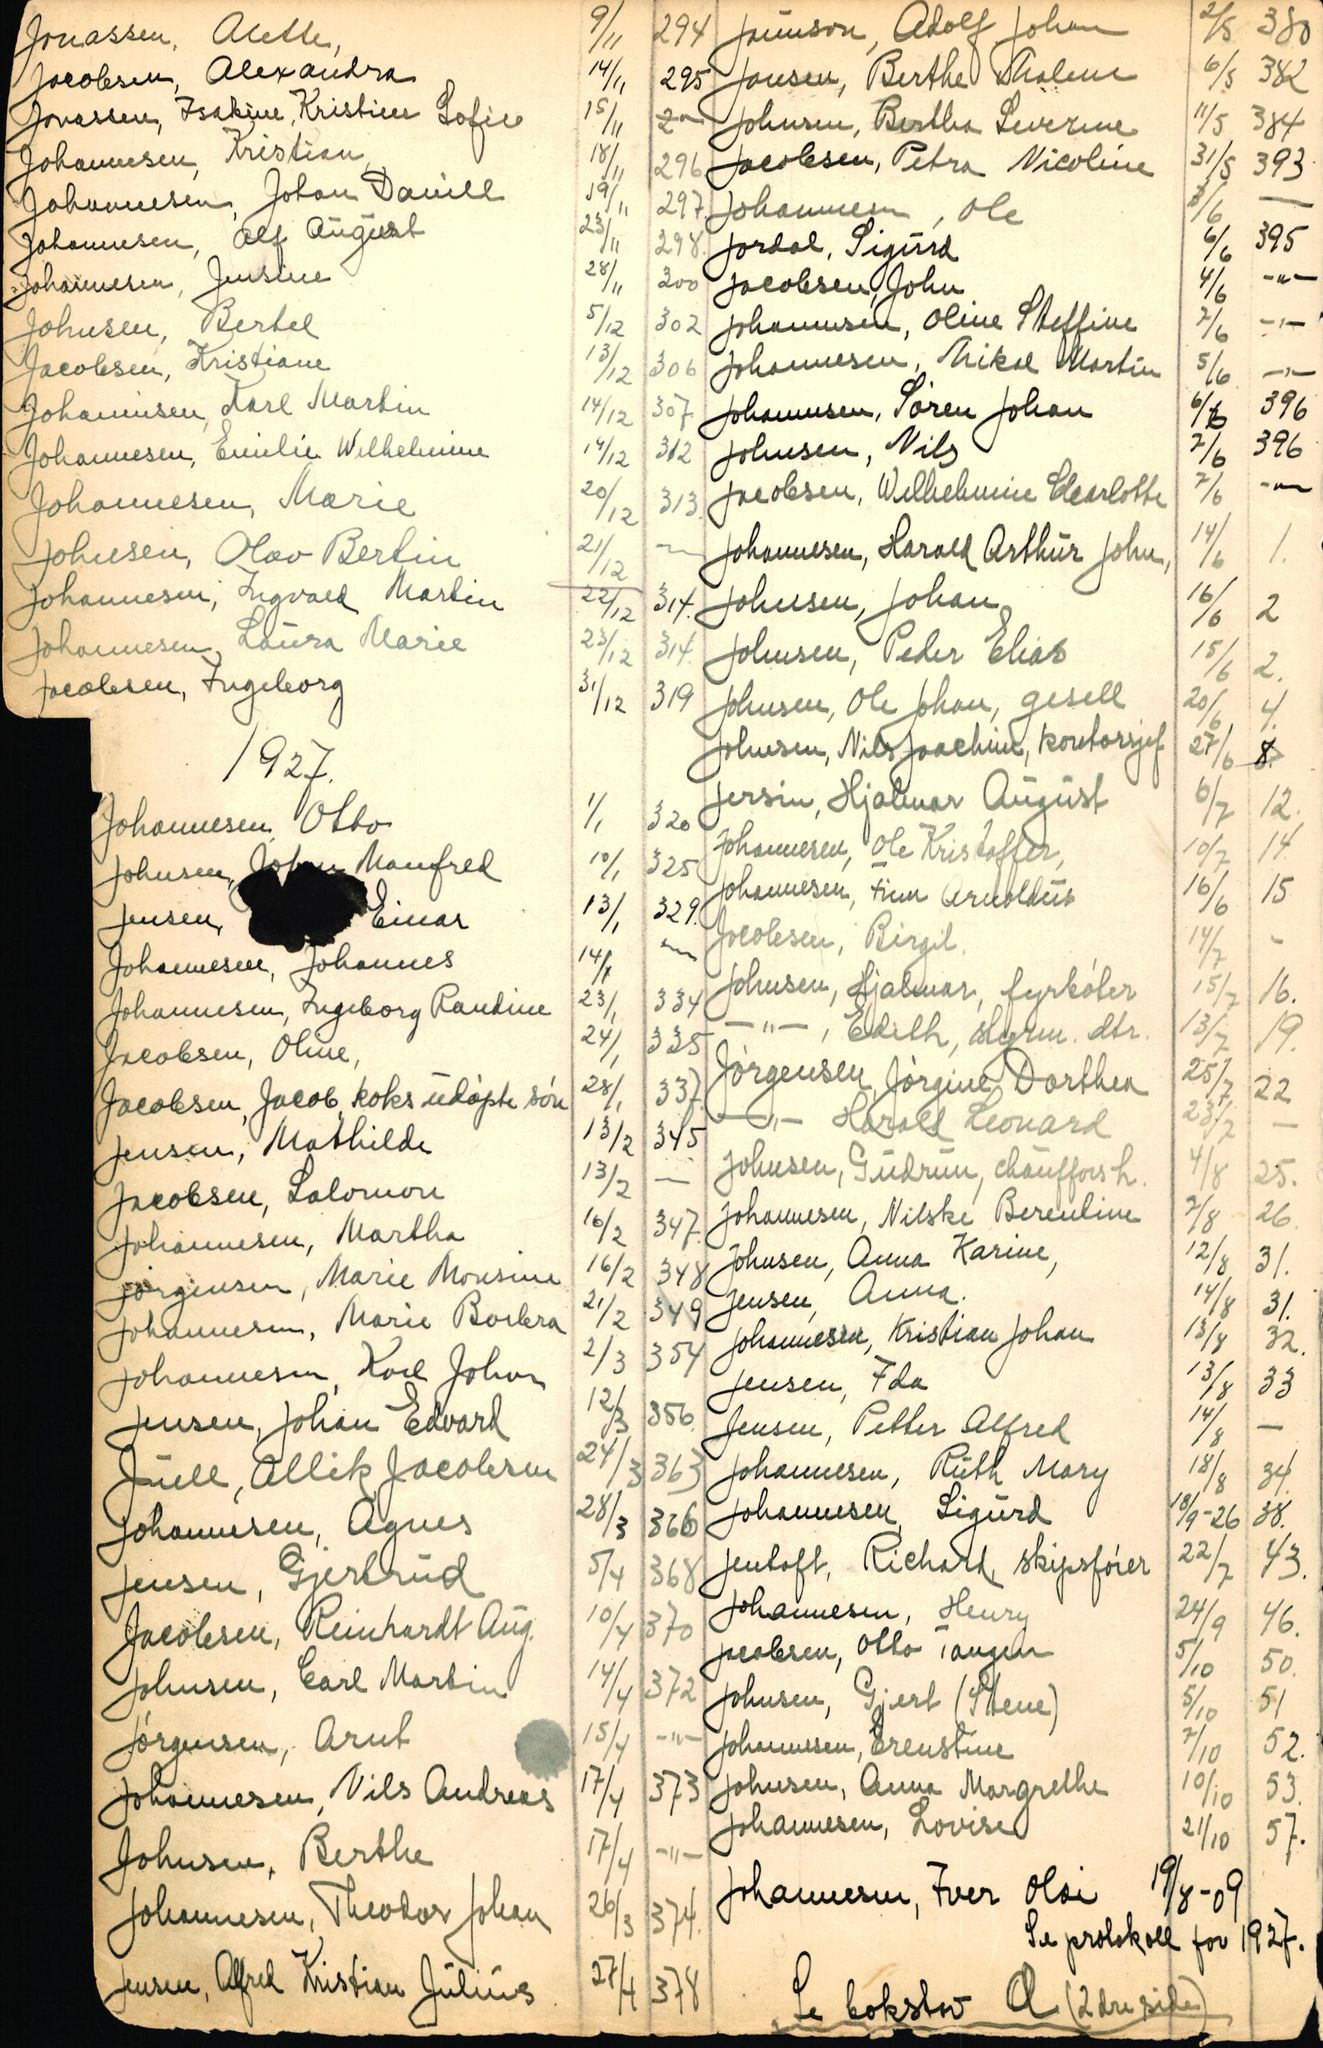 Jonassen, Alette, 9/11 294
Jacobsen, Alexandra 14/11 295
Jonassen, Isakine, Kristine Sofie 15/11 -"-
Johannesen, Kristian, 18/11 296
Johannesen, Johan Daniel 19/11 297
Johannesen, Alf August 23/11 298
Johannesen, Jensine 28/11 300
Johnsen, Bertel 5/12 302
Jacobsen, Kristiane 13/12 306
Johannesen, Karl Martin 14/12 307
Johannesen, Emilie Wilhelmine 14/12 312
Johannesen, Marie 20/12 313
Johnsen, Olav Bertin 21/12 -"-
Johannesen, Ingvald Martin 22/12 314.
Johannesen, Laura Marie 23/12 314.
Jacobsen, Ingeborg 31/12 319
1927.
Johannesen, Otto 1/1 320
Johnsen, Johan Manfred 10/1 325
Jensen, Einar 13/1 329.
Johannesen, Johannes 14/1 -"-
Johannesen, Ingeborg Randine 23/1 334
Jacobsen, Oline, 24/1 335
Jacobsen, Jacob, koks udøpte søn 28/1 337.
Jensen, Mathilde 13/2 345
Jacobsen, Salomon 13/2 -"-
Johannesen, Martha 16/2 347.
Jørgensen, Marie Monsine 16/2 348
Johannesen, Marie Barbra 21/2 349
Johannesen, Karl Johan 2/3 354
Jensen, Johan Edvard 12/3 356.
Juell, Allik Jacobsen 24/3 363
Johannesen, Agnes 28/3 366
Jensen, Gjertrud 5/4 368
Jacobsen, Reinhardt Aug. 10/4 370
Johnsen, Carl Martin 14/4 372
Jørgensen, Arnt 15/4 -"-
Johannesen, Nils Andreas 17/4 373
Johnsen, Berthe 17/4 -"-
Johannesen, Theodor Johan 26/3 374.
Jensen, Alfred Kristian Julius 27/4 378
Adolf Johan 2/5 380
Jansen, Berthe Thalene 6/5 382
Johnsen, Bertha Severine 11/5 384
Jacobsen, Petra Nicoline 31/5 393
Johannesen, Ole 3/6 —
Jordal, Sigurd 6/6 395
Jacobsen, John 4/6 -"-
Johannesen, Oline Steffine 2/6 -"-
Johannesen, Mikal Martin 5/6 -"-
Johannesen, Søren Johan 6/6 396
Johnsen, Nils 7/6 396
Jacobsen, Wilhelmine Charlotte 7/6 -"-
Johannesen, Harald Arthur John, 14/6 1.
Johnsen, Johan 16/6 2
Johnsen, Peder Elias 15/6 2.
Johnsen, Ole Johan, gesell 20/6 4.
Johnsen, Nils Joachim, kontorsjef 27/6 8.
Jersin, Hjalmar August 6/7 12.
Johannesen, Ole Kristoffer, 10/7 14.
Johannesen, Finn Arnoldus 16/6 15
Jacobsen, Birgit. 14/7 -
Johnsen, Hjalmar, fyrbøter 15/7 16.
-"-, Edith, styrm. dtr. 13/7 19.
Jørgensen, Jørgine Dorthea 25/7 22
-"- Harald Leonard 23/7 —
Johnsen, Gudrun, chaufførs h. 4/8 25.
Johannesen, Nilske Berentine 7/8 26.
Johnsen, Anna Karine, 12/8 31.
Jensen, Anna. 14/8 31.
Johannesen, Kristian Johan 13/8 32.
Jensen, Ida 13/8 33
Jensen, Petter Alfred 14/8 —
Johannesen, Ruth Mary 18/8 34.
Johannesen, Sigurd 18/9-26 38.
Jentoft, Richard, skipsfører 22/7 43.
Johannesen, Henry 24/9 46.
Jacobsen, Otto Tangen 5/10 50.
Johnsen, Gjert (Stene) 5/10 51
Johannesen, Ernstine 7/10 52.
Johnsen, Anna Margrethe 10/10 53.
Johannesen, Lovise 21/10 57.
Johannesen, Iver Olai 19/8-09
Se protokoll for 1927.
Se bokstav A (2dre side)